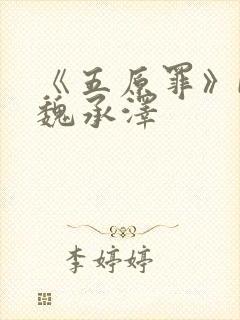 《五原罪》
魏承泽
李婷婷